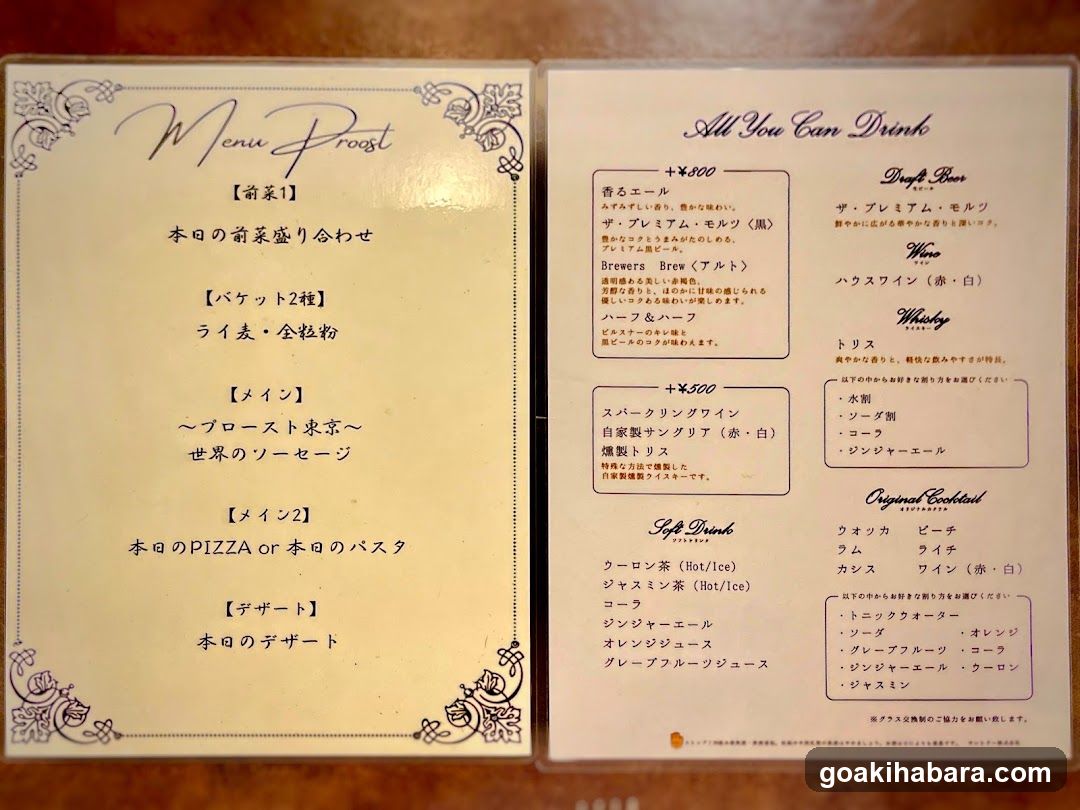 Menu Proost
【前菜1】
本日の前菜盛り合わせ
【バケット2種】
ライ麦・全粒粉
【メイン】
〜プロースト東京〜
世界のソーセージ
【メイン2】
本日のPIZZA or 本日のパスタ
【デザート】
本日のデザート
All You Can Drink
+¥800
香るエール
みずみずしい香り、豊かな味わい。
ザ・プレミアム・モルツ〈黒〉
豊かなコクとうまみがたのしめる、
プレミアム黒ビール。
Brewers Brew〈アルト〉
透明感ある美しい赤褐色。
芳醇な香りと、ほのかに甘味の感じられる
優しいコクある味わいが楽しめます。
ハーフ＆ハーフ
ピルスナーのキレ味と
黒ビールのコクが味わえます。
+¥500
スパークリングワイン
自家製サングリア（赤・白）
燻製トリス
特殊な方法で燻製した
自家製燻製ウイスキーです。
Soft Drink
ソフトドリンク
ウーロン茶 (Hot/Ice)
ジャスミン茶 (Hot/Ice)
コーラ
ジンジャーエール
オレンジジュース
グレープフルーツジュース
Draft Beer
生ビール
ザ・プレミアム・モルツ
鮮やかに広がる華やかな香りと深いコク。
Wine
ワイン
ハウスワイン（赤・白）
Whisky
ウイスキー
トリス
爽やかな香りと、軽快な飲みやすさが特長。
以下の中からお好きな割り方をお選びください
・水割
・ソーダ割
・コーラ
・ジンジャーエール
Original Cocktail
オリジナルカクテル
ウォッカ ピーチ
ラム ライチ
カシス ワイン（赤・白）
以下の中からお好きな割り方をお選びください
・トニックウォーター
・ソーダ ・オレンジ
・グレープフルーツ ・コーラ
・ジンジャーエール ・ウーロン
・ジャスミン
※グラス交換制のご協力をお願い致します。
goakihabara.com